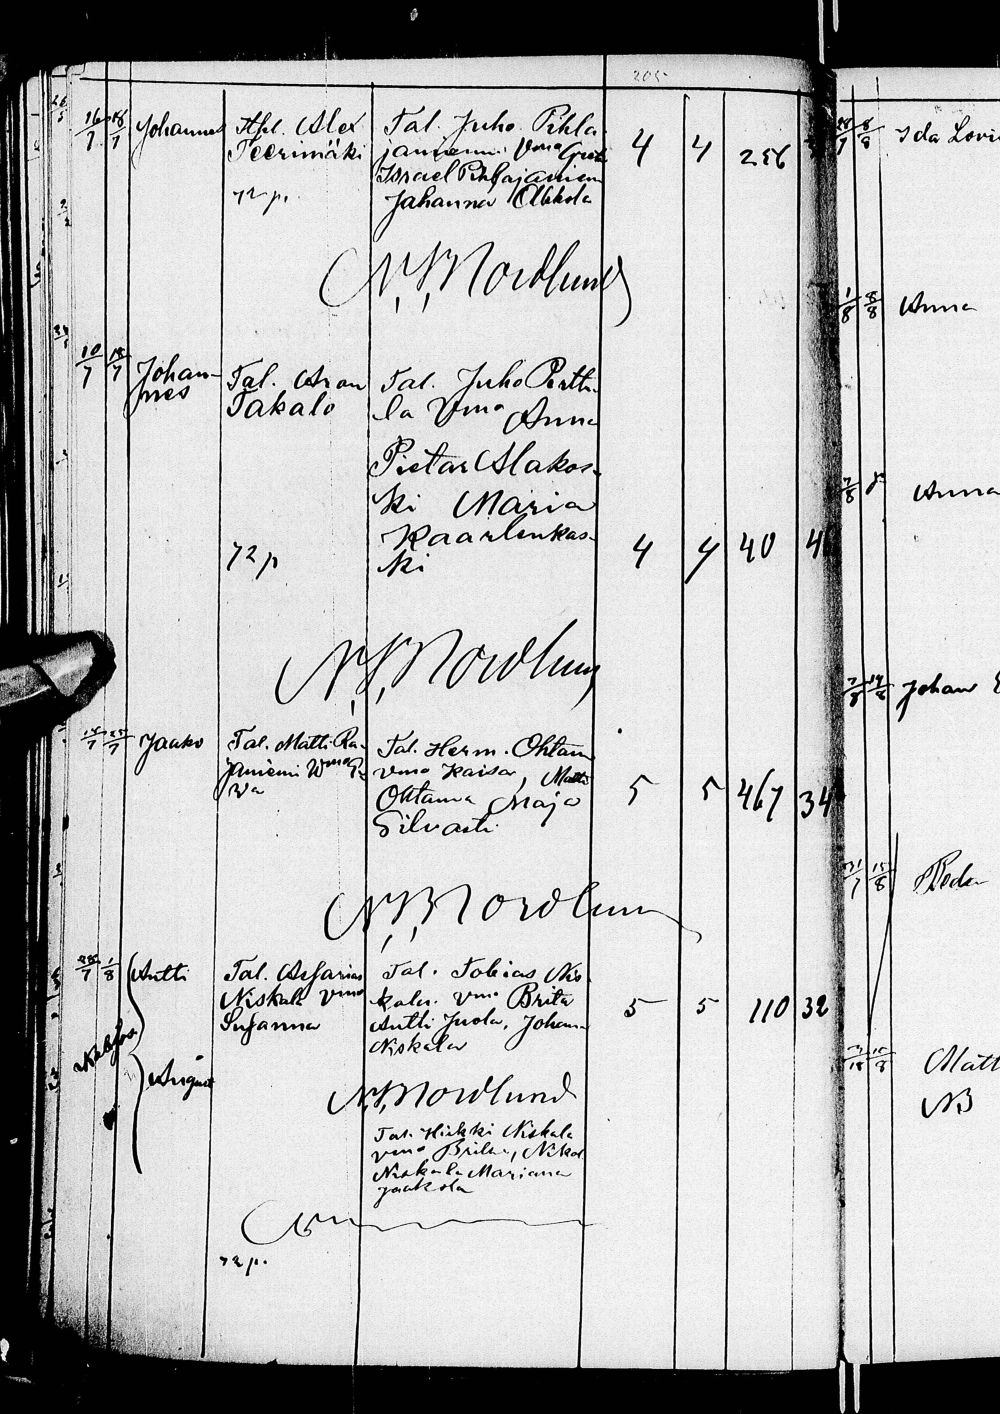 205
16/7 18/7 Johannes
Alex
Teerimäki
72 p.
Tal. Juho Pihla-
janiemi Vmo
Israel Pihlajaniemi
Johanna Alkkola
4 4 256
N. B. Nordlund
10/7 18/7 Johan-
nes
Tal. Aron
Takalo
72 p
Tal. Juho Pertti-
la Vmo Anna
Pietar Alakos-
ki Maria
Kaarlenkos-
ki
4 4 40 4
N. B. Nordlund
Jaako
Tal. Matti Ra-
janiemi Vmo
Tal. Herm. Ohtam
vmo Kaisa, Matti
Ohtama Maja
Silvasti
5 5 467 34
N. B. Nordlund
28/7 1/8 Antti
Tal. Asarias
Niskala vmo
Susanna
Tal. Tobias Nis-
kala. vmo Brita
Antti Juola, Johan
Niskala
5 5 110 32
Kaksos
August
N. B. Nordlund
Tal. Heikki Niskala
vmo Brita,
Niskala Mariana
Jaakola
72 p.
8/8 Ida Lovi
1/8 8/8 Anna
7/8 Anna
7/8 14/8 Johan E
31/7 15/8 Peder
Matt
NB